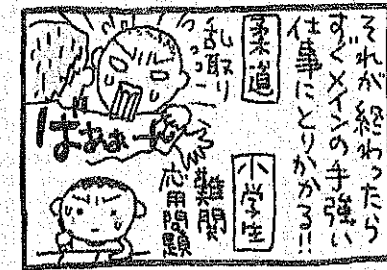 それが終わったら
すぐメインの手強い
仕事にとりかかる!!
柔道
乱取り
ばぁぁーん
小学生
難関
応用問題